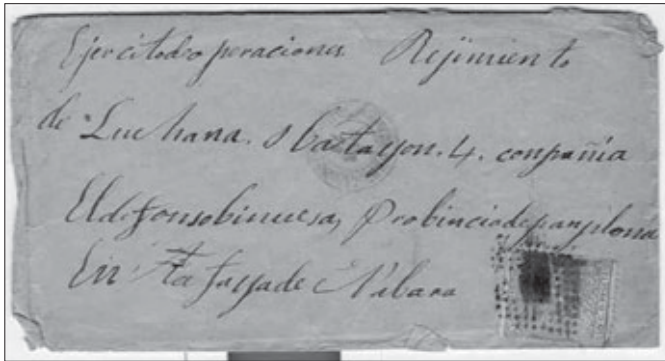 Ejercitodeoperaciones Rejimiento
de Luchana. Batayon. 4. conpañia
Eldefonsobinuesa, Probinciadepanplona
En Tafayade Nabara